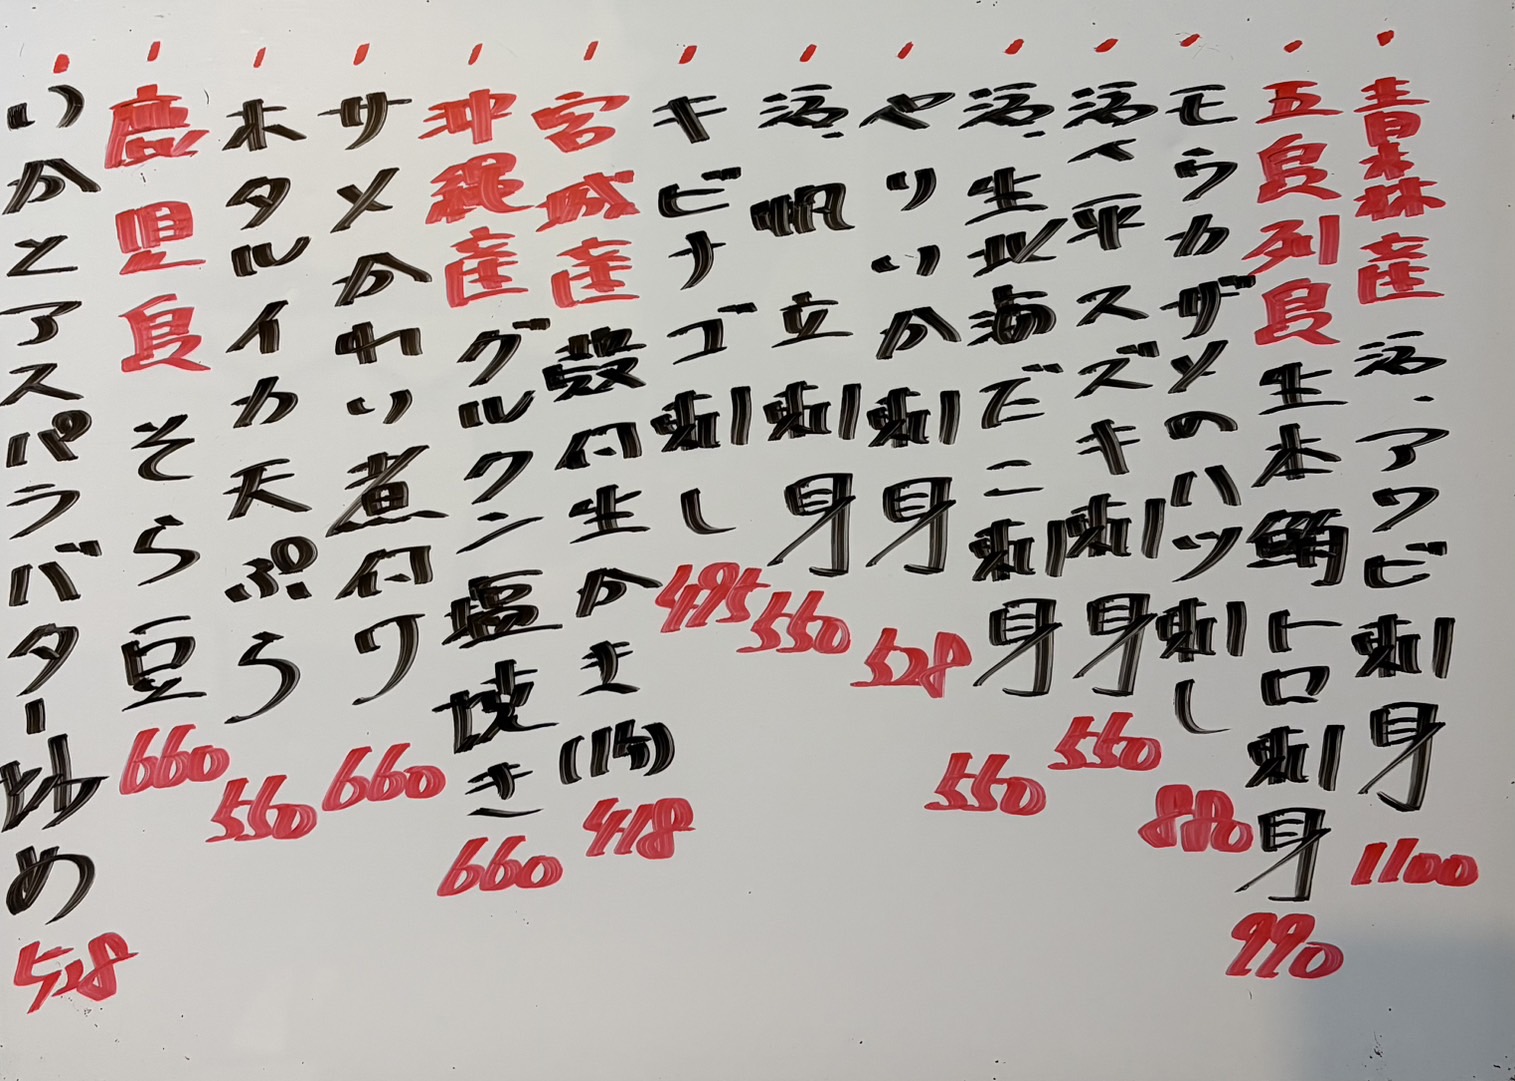 青森産 活・アワビ刺身 1100
五島列島 生本鮪トロ刺身 990
モウカザメのハツ刺し 880
活〆平スズキ刺身 550
活・生北海だこ刺身 550
やりいか刺身 528
活・帆立刺身 550
キビナゴ刺し 495
宮城産 殻付生かき 418
沖縄産 グルクン塩焼き 660
サメかれい煮付け 660
ホタルイカ天ぷら 550
鹿児島 そら豆 660
いかとアスパラバター炒め 528